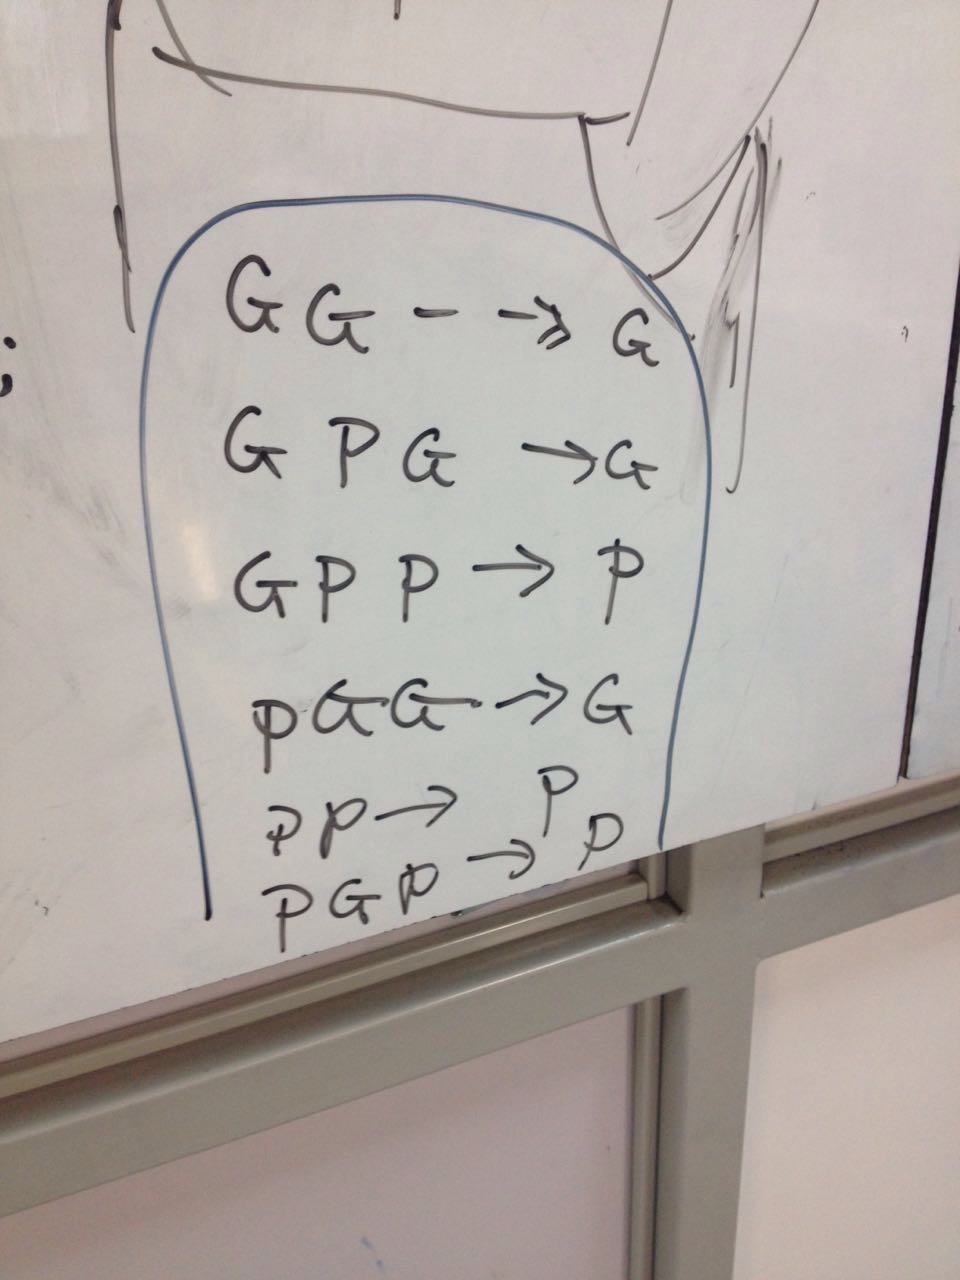 ;
G G - -> G
G P G → G
G P P → P
P G G -→ G
P P → P
P G P → P